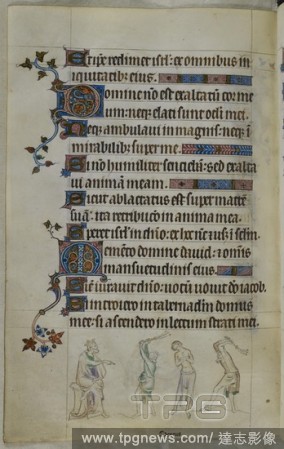 Et ip̄e redimet isrł: ex omnibus in
iquitatibꝫ eius.
Domine nō est exaltatū cor me
um: neqꝫ elati sunt oculi mei.
Neqꝫ ambulaui in magnis: neqꝫ i
mirabilibꝫ super me.
Si nō humiliter sentiebā: sed exalta
ui animā meam.
Sicut ablactatus est super matrē
suā: ita retributio in anima mea.
Speret isrł in dn̄o: ex hoc nūc
Memēto domine dauid: et omīs
mansuetudinis eius.
Sicut iurauit dn̄o: uotū uouit dō iacob.
Si introiero in tabernaclm̄ domus
mee: si ascendero in lectum strati mei.
TPG
www.tpgnews.com/達志影像